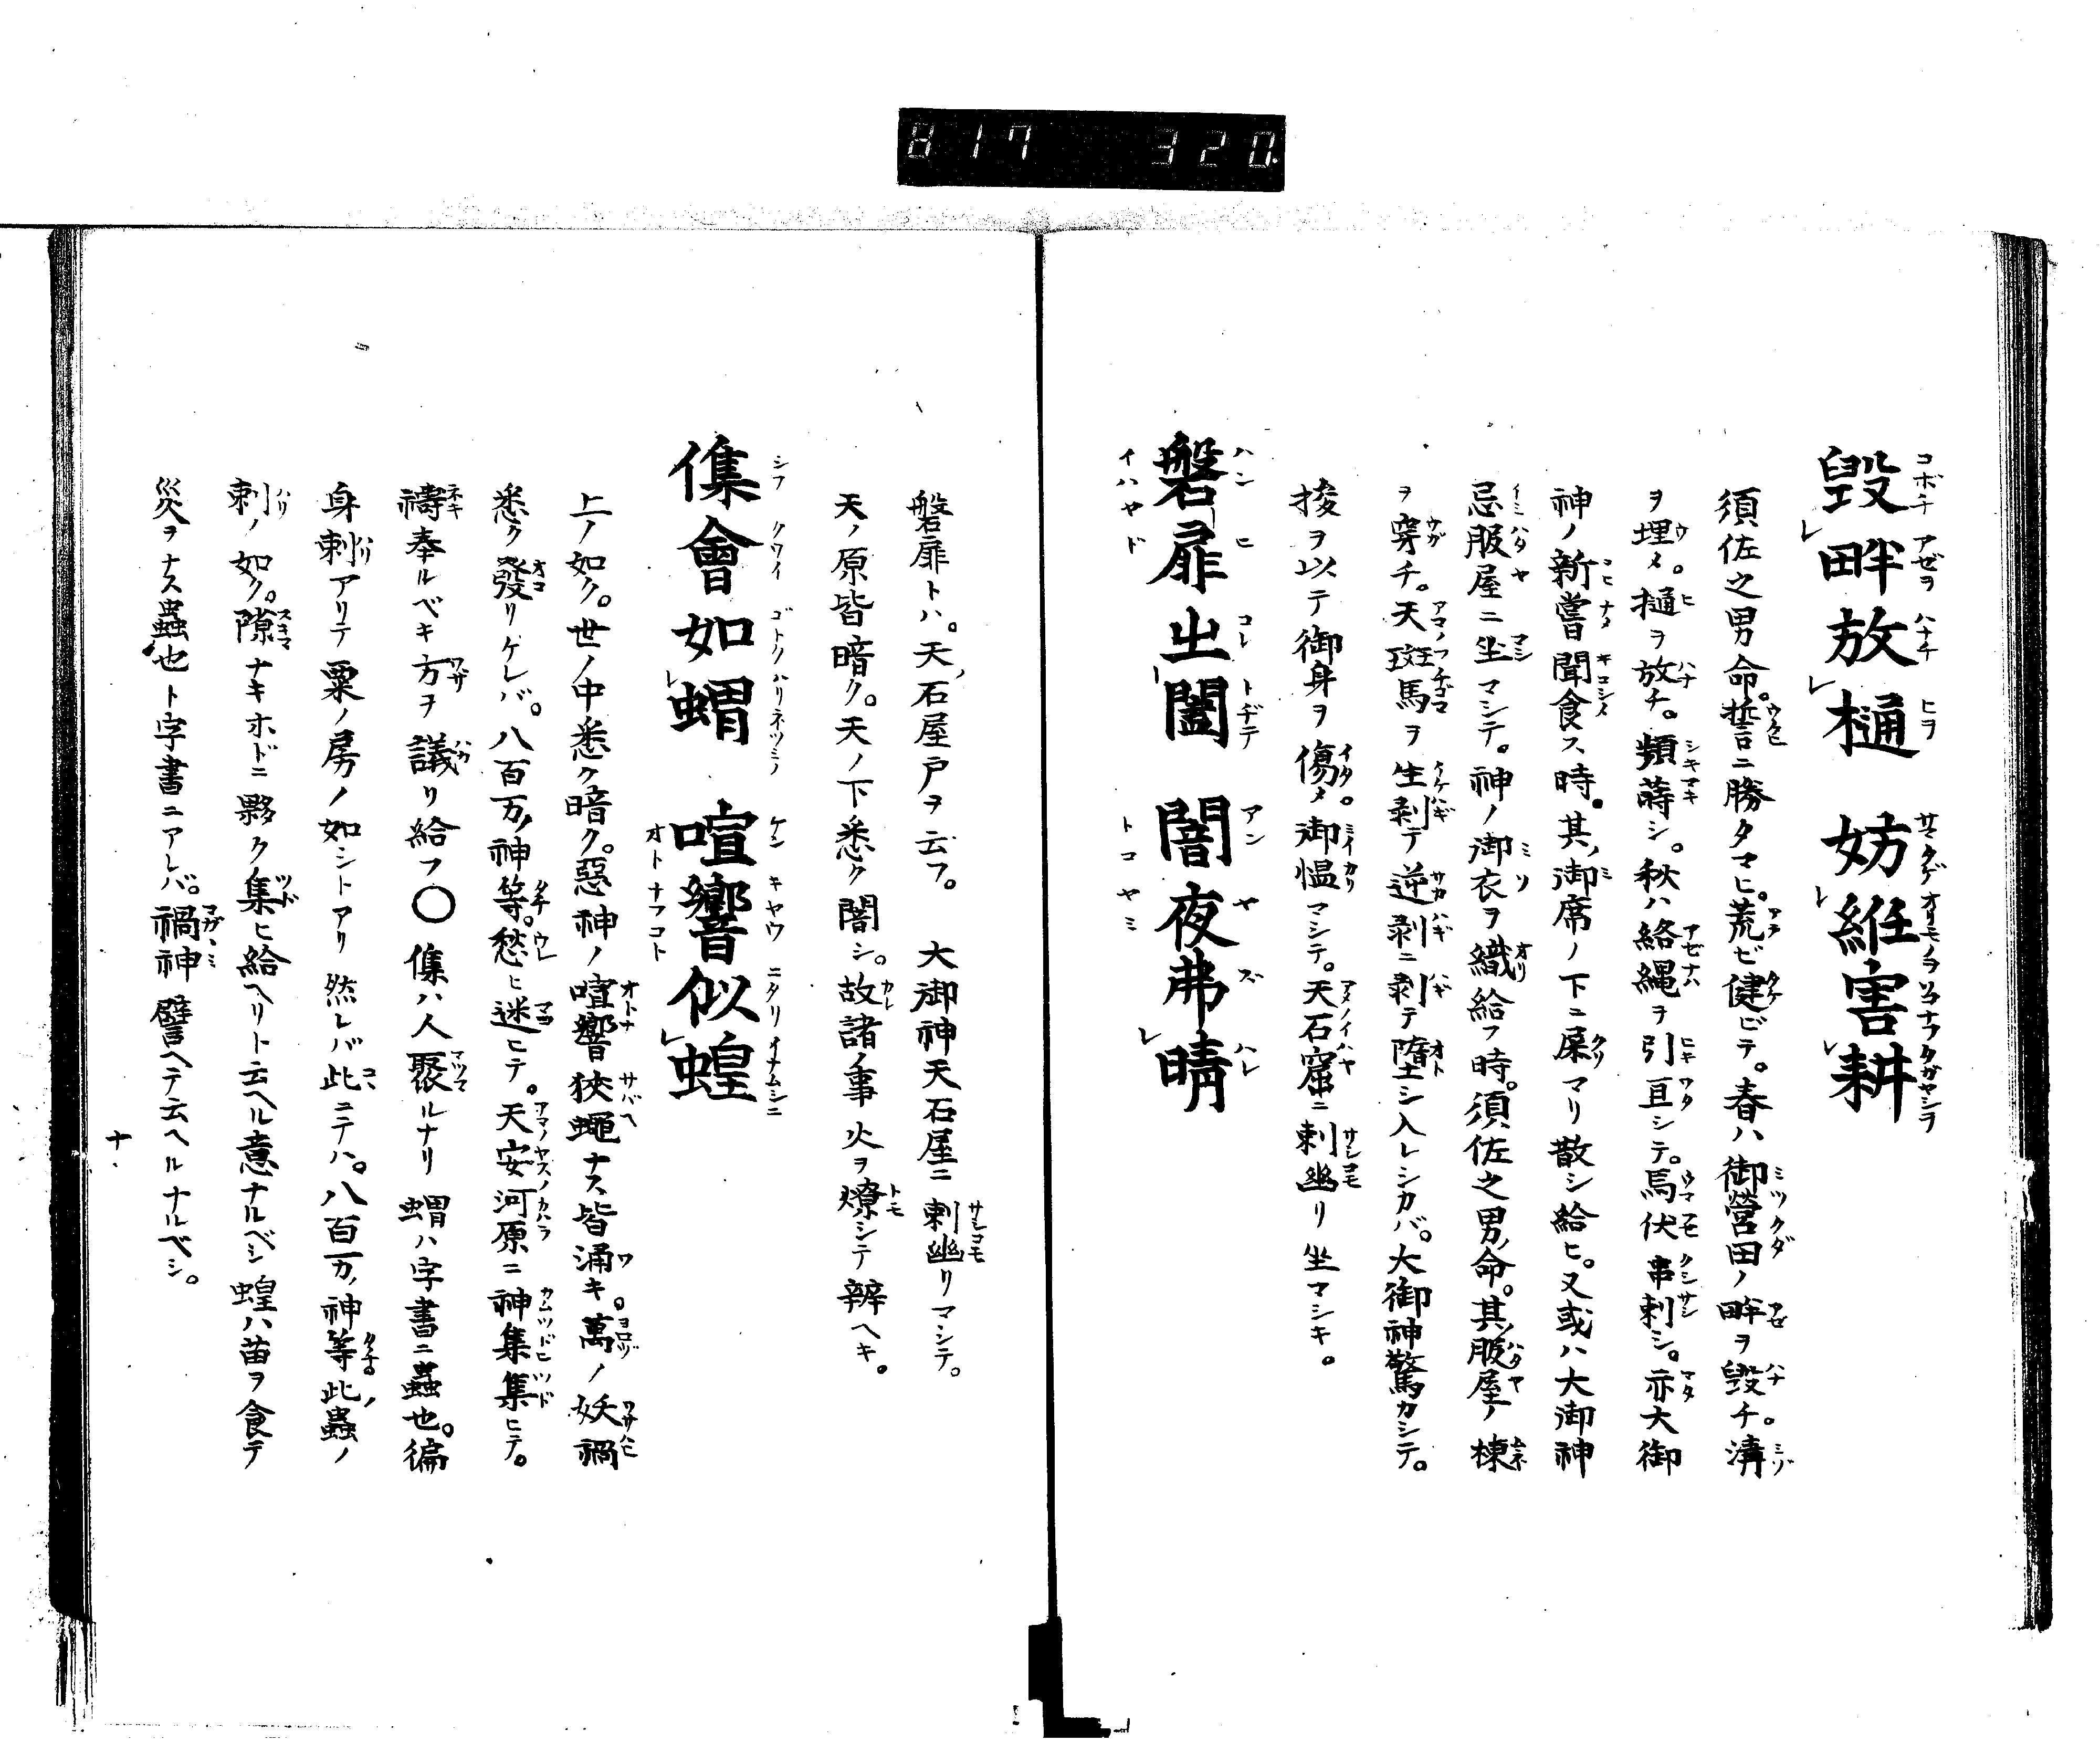 817 320.
毀畔放樋 妨絍害耕
須佐之男命。誓ニ勝タマヒ。荒ビ健ビテ。春ハ御営田ノ畔ヲ毀チ。溝
ヲ埋メ。樋ヲ放チ。頻蒔シ。秋ハ絡縄ヲ引亘シテ。馬伏串刺シ。亦大御
神ノ新嘗聞食ス時。其ノ御席ノ下ニ屎マリ散シ給ヒ。又或ハ大御神
忌服屋ニ坐マシテ。神ノ御衣ヲ織給フ時。須佐之男ノ命。其ノ服屋ノ棟
ヲ穿チ。天斑馬ヲ生剥テ逆剥ニ剥テ堕シ入レシカバ。大御神驚カシテ。
梭ヲ以テ御身ヲ傷メ。御慍マシテ。天石窟ニ刺幽リ坐マシキ。
磐扉㞢闔 闇夜弗晴
磐扉トハ。天ノ石屋戸ヲ云フ。 大御神天石屋ニ刺幽リマシテ。
天ノ原皆暗ク。天ノ下悉ク闇シ。故諸ノ事火ヲ燎シテ辨ヘキ。
㒅會如蝟 喧響似蝗
上ノ如ク。世ノ中悉ク暗ク。惡神ノ喧響狹蠅ナス皆涌キ。萬ノ妖禍
悉ク發リケレバ。八百万ノ神等。愁ヒ迷ヒテ。天安河原ニ神集集ヒテ。
禱奉ルベキ方ヲ議リ給フ〇㒅ハ人聚ルナリ 蝟ハ字書ニ蟲也。徧
身刺アリテ栗ノ房ノ如シトアリ 然レバ此ニテハ。八百万ノ神等ノ此蟲ノ
刺ノ如ク。隙ナキホドニ夥ク集ヒ給ヘリト云ヘル意ナルベシ 蝗ハ苗ヲ食テ
災ヲナス蟲也ト字書ニアレバ。禍神ニ譬ヘテ云ヘルナルベシ。
十